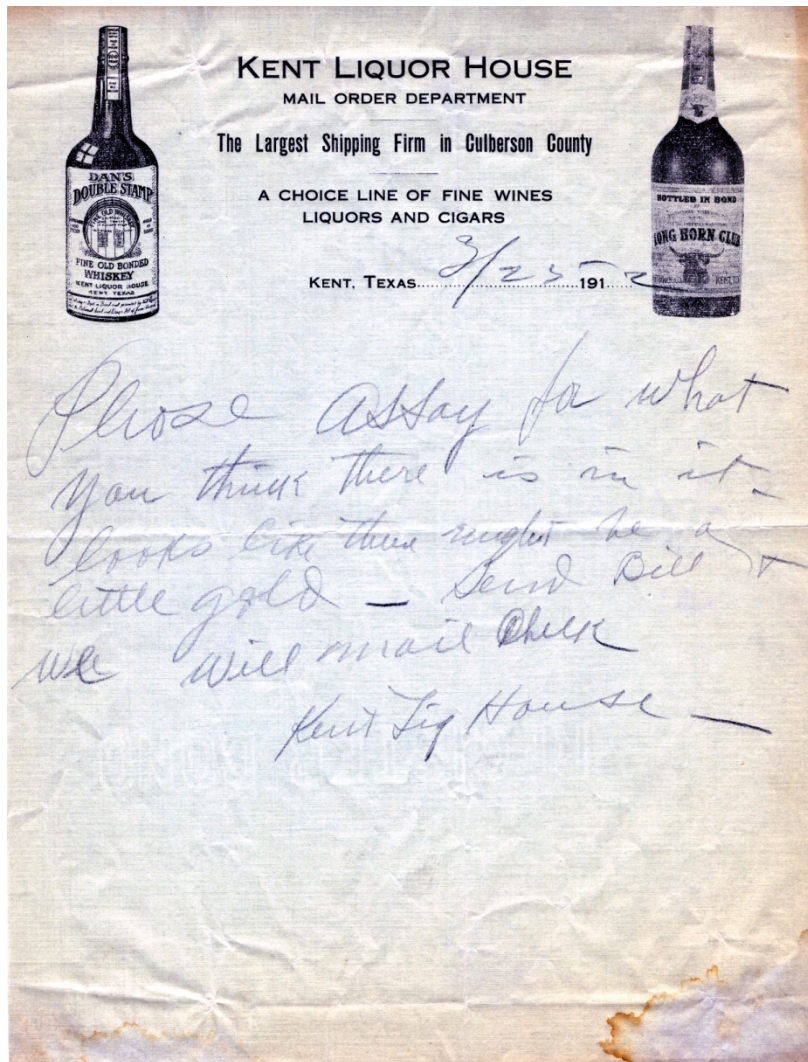 KENT LIQUOR HOUSE
MAIL ORDER DEPARTMENT
The Largest Shipping Firm in Culberson County
A CHOICE LINE OF FINE WINES
LIQUORS AND CIGARS
KENT, TEXAS 3/25 191 2
DAN'S
DOUBLE STAMP
FINE OLD WHISKEY
FINE OLD BONDED
WHISKEY
KENT LIQUOR HOUSE
KENT TEXAS
BOTTLED IN BOND
LONG HORN CLUB
Please assay for what
you think there is in it –
looks like there might be a
little gold – Send Bill +
we will mail Check
Kent Liq House –